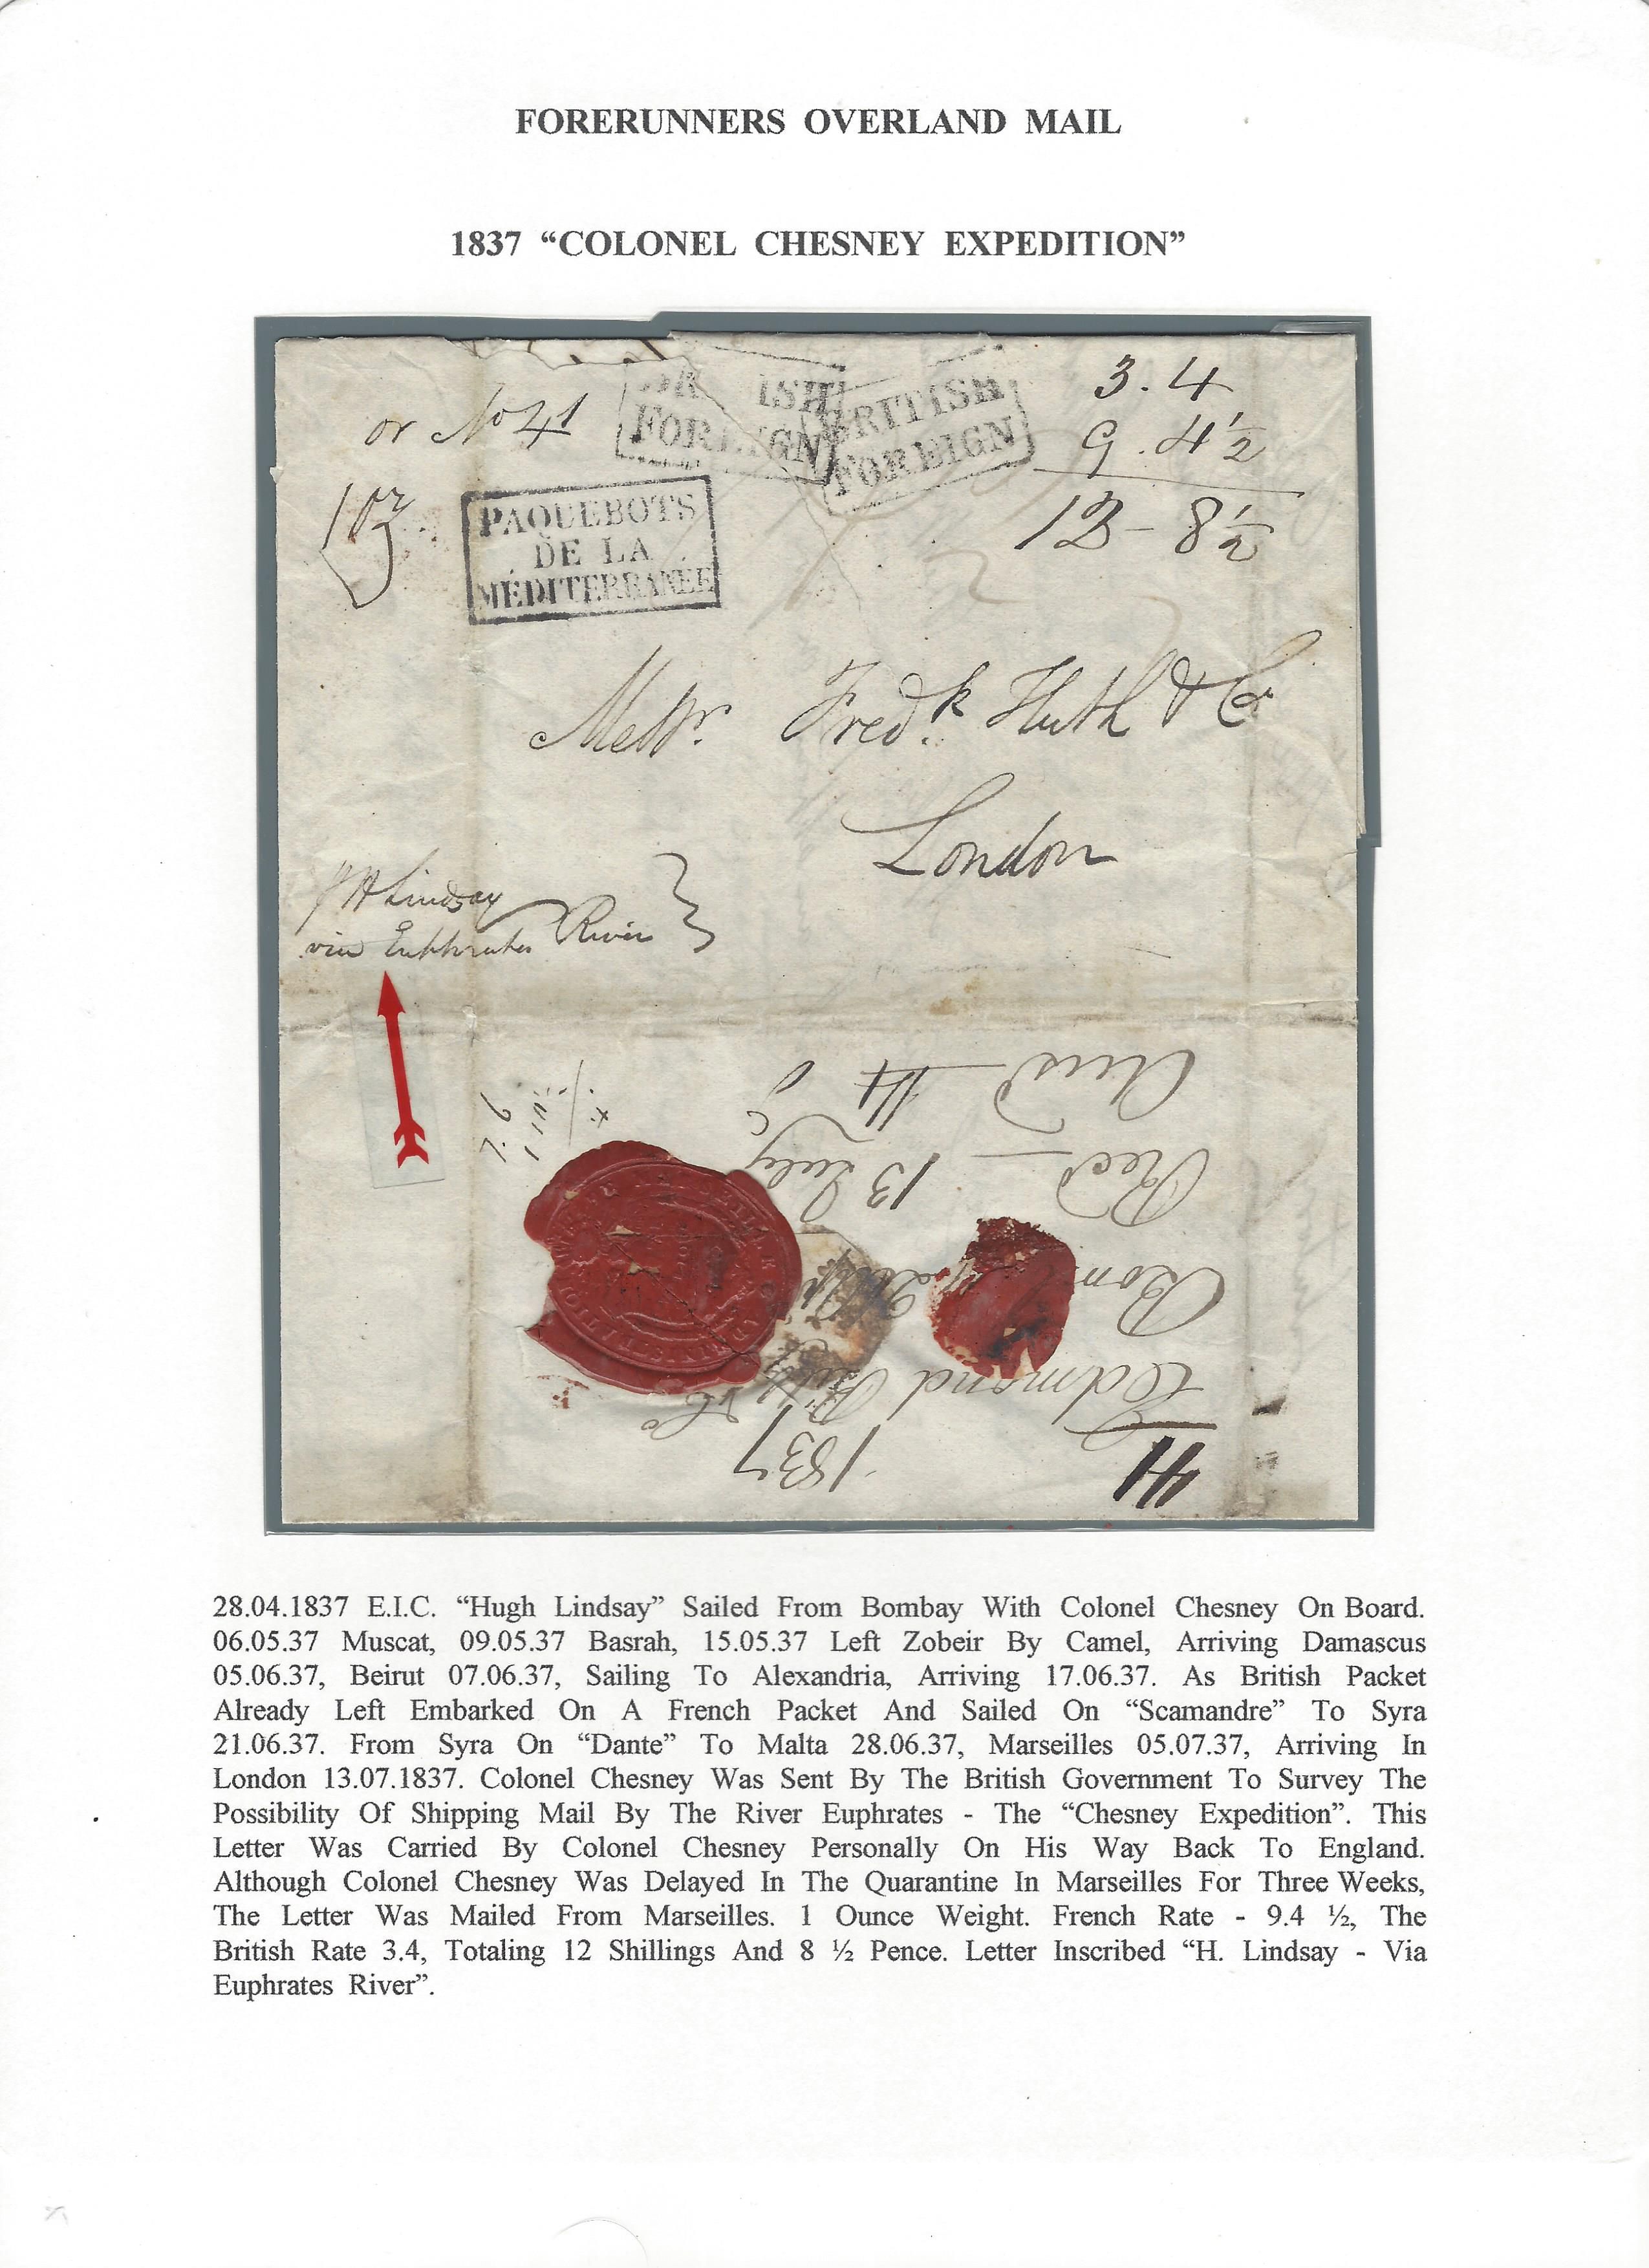 FORERUNNERS OVERLAND MAIL
1837 “COLONEL CHESNEY EXPEDITION”
or No 41
ISH
FOREIGN
BRITISH
FOREIGN
3.4
9.4½
12-8½
1 oz
PAQUEBOTS
DE LA
MÉDITERRANÉE
Messrs. Fredk. Huth & Co
London
H Lindsay
via Euphrates River
41
1837
Edmond & Co
Bom
Recd 13 July
Ansd
28.04.1837 E.I.C. “Hugh Lindsay” Sailed From Bombay With Colonel Chesney On Board.
06.05.37 Muscat, 09.05.37 Basrah, 15.05.37 Left Zobeir By Camel, Arriving Damascus
05.06.37, Beirut 07.06.37, Sailing To Alexandria, Arriving 17.06.37. As British Packet
Already Left Embarked On A French Packet And Sailed On “Scamandre” To Syra
21.06.37. From Syra On “Dante” To Malta 28.06.37, Marseilles 05.07.37, Arriving In
London 13.07.1837. Colonel Chesney Was Sent By The British Government To Survey The
Possibility Of Shipping Mail By The River Euphrates - The “Chesney Expedition”. This
Letter Was Carried By Colonel Chesney Personally On His Way Back To England.
Although Colonel Chesney Was Delayed In The Quarantine In Marseilles For Three Weeks,
The Letter Was Mailed From Marseilles. 1 Ounce Weight. French Rate - 9.4 ½, The
British Rate 3.4, Totaling 12 Shillings And 8 ½ Pence. Letter Inscribed “H. Lindsay - Via
Euphrates River”.